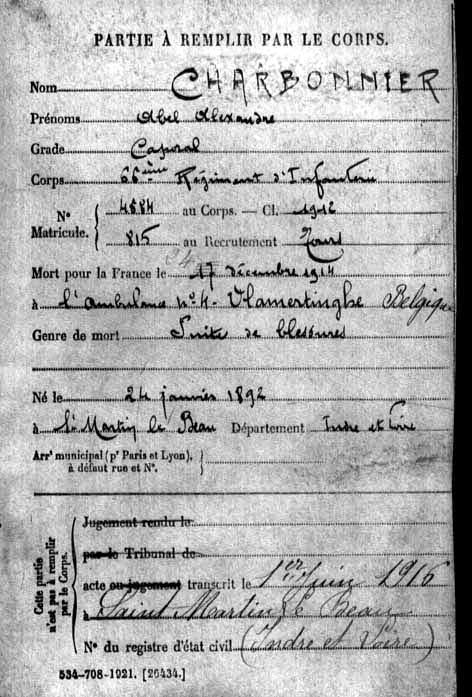 PARTIE À REMPLIR PAR LE CORPS.
Nom CHARBONNIER
Prénoms Abel Alexandre
Grade Caporal
Corps 66ème Régiment d'Infanterie
N° Matricule. { 4584 au Corps. — Cl. 1912
815 au Recrutement Tours
Mort pour la France le 17 décembre 1914
à l'ambulance n°4 - Vlamertinghe Belgique
Genre de mort Suite de blessures
Né le 24 janvier 1892
à St Martin le Beau Département Indre et Loire
Arrt municipal (pr Paris et Lyon), }
à défaut rue et N°.
Cette partie n'est pas à remplir par le Corps.
Jugement rendu le
par le Tribunal de
acte ou jugement transcrit le 1er Juin 1916
à Saint Martin le Beau
N° du registre d'état civil (Indre et Loire)
534-708-1921. [26434.]